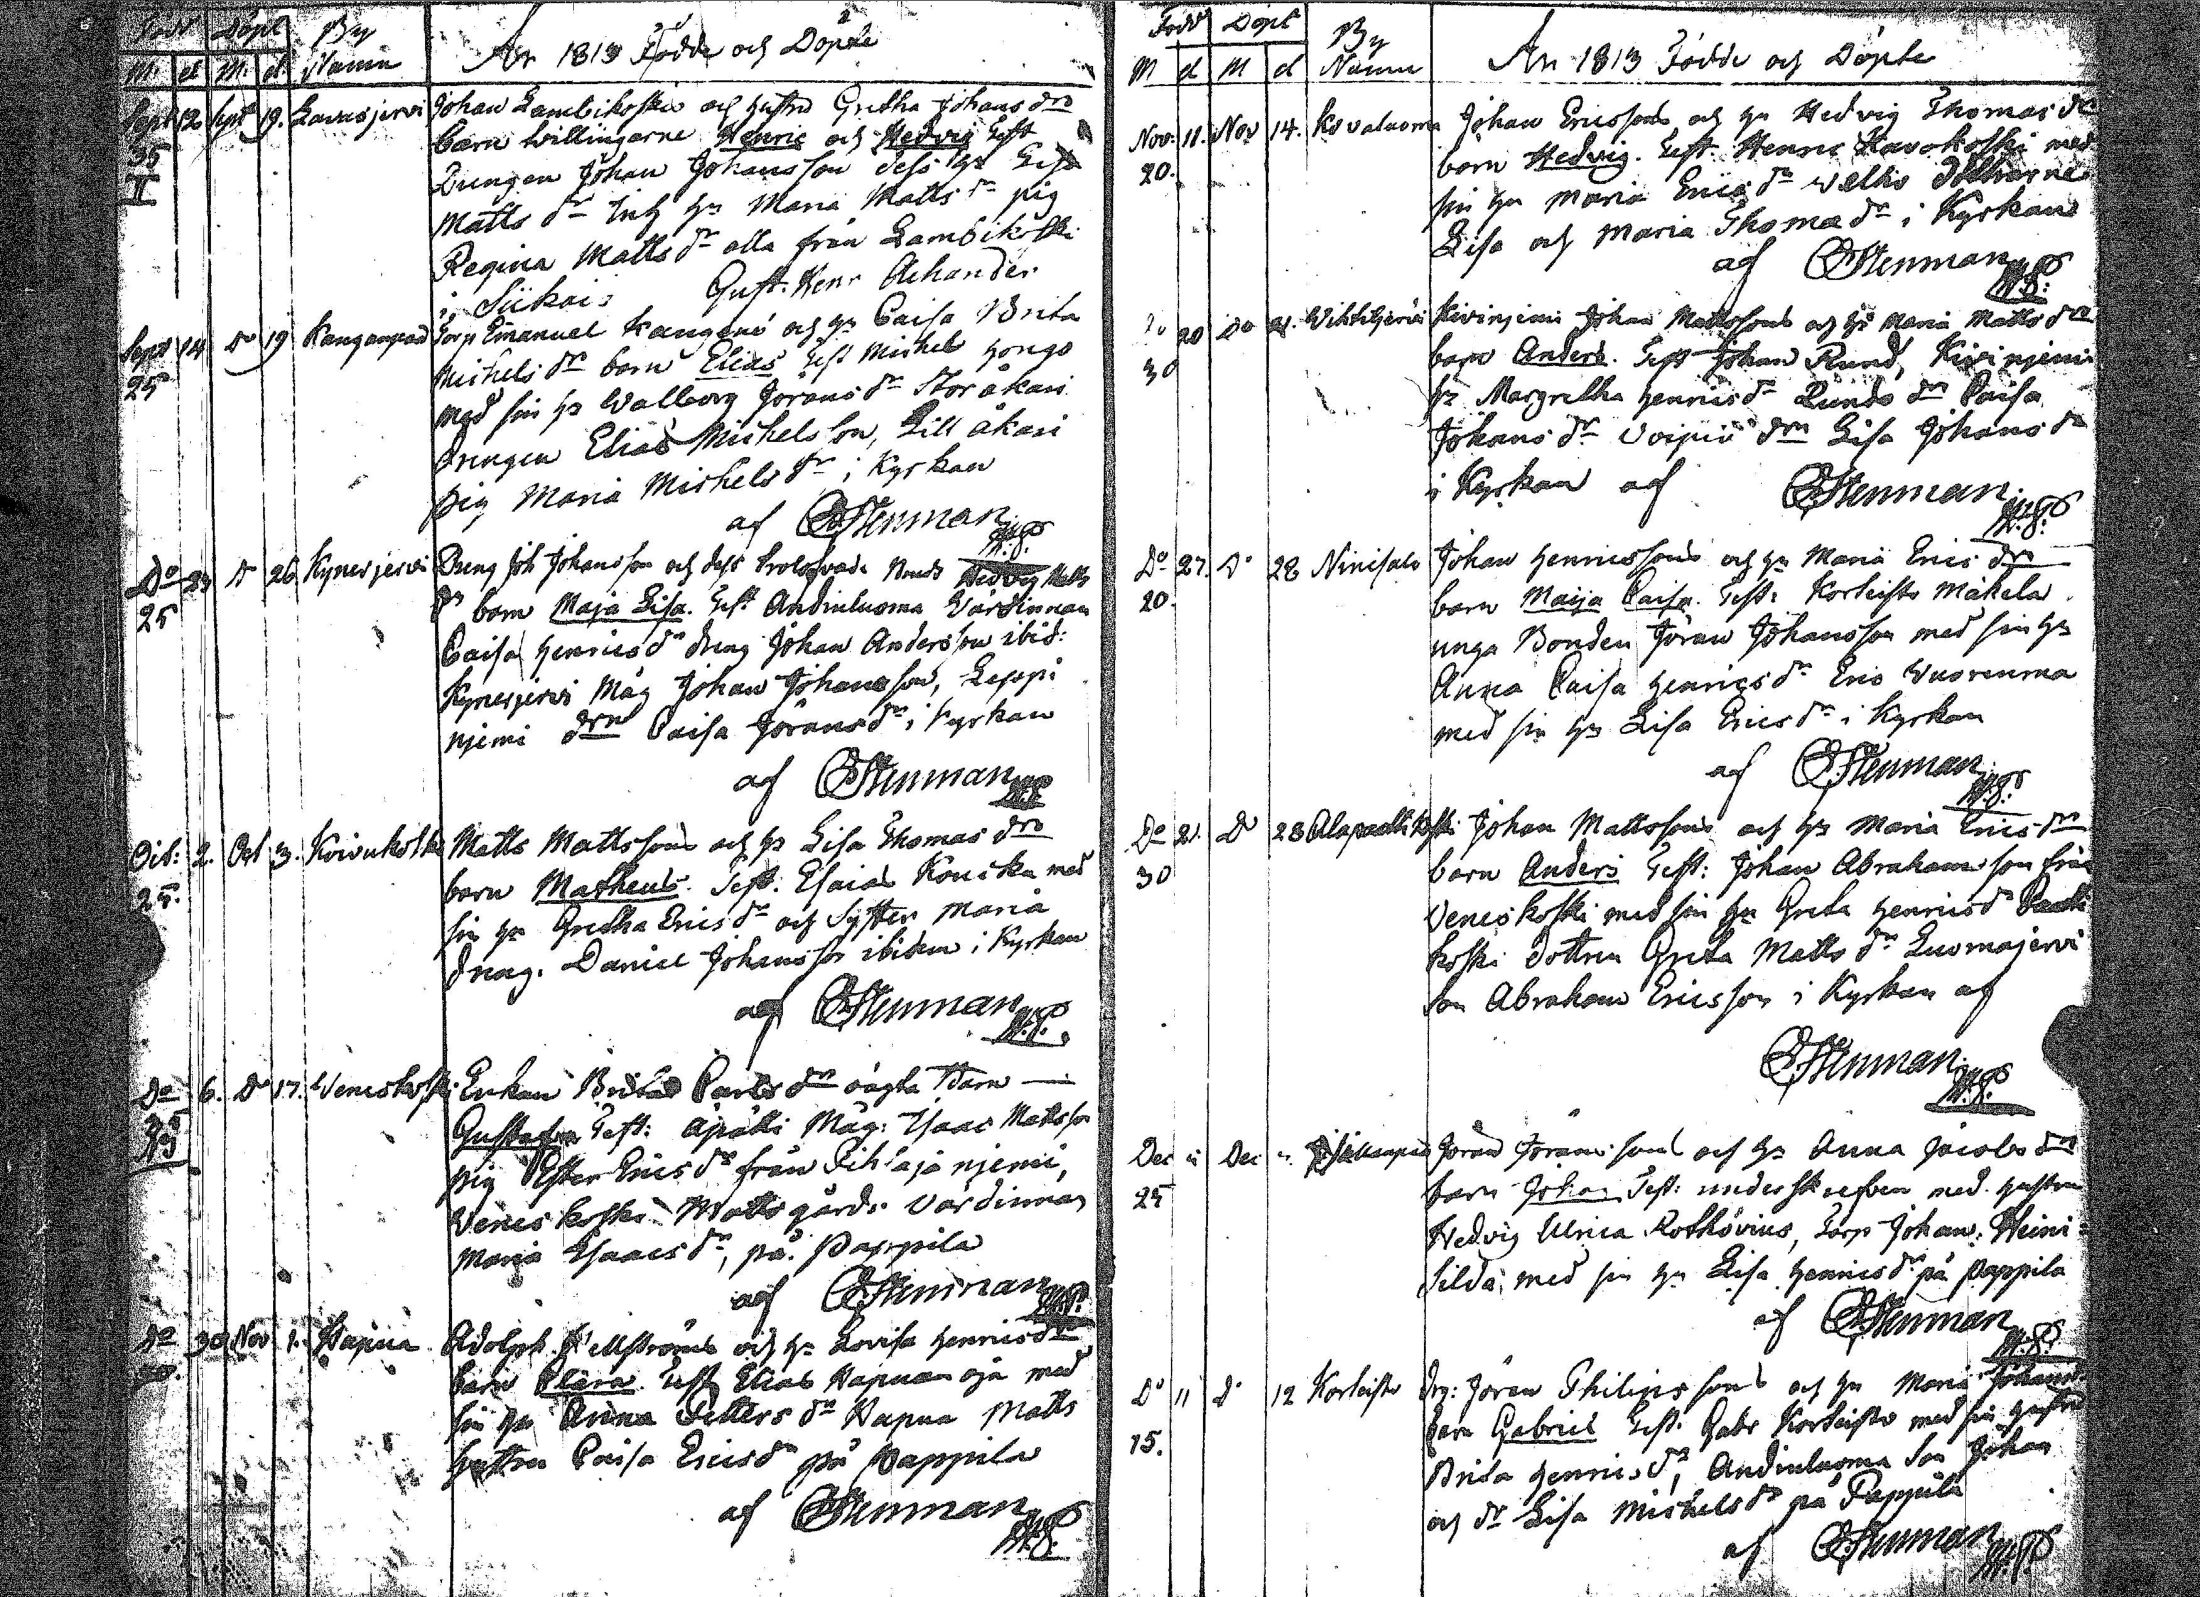 Född Döpt By
M: d M: d. Namn
År 1813 Födde och Döpte
Sept 12. Sept 19. Lavasjervi Johan Lambikoskis och hustru Gretha Johans drs
35 barn twillingarne Henric och Hedvig Test
II Drengen Johan Johansson dess hu Lisa
Matts dr hu Maria Matts dr pig
Regina Matts dr alla från Lambikoski
i Siikais Gust. Henr Achander
Sept 14 Do 19 Kanganpää Torp Emanuel Kangens och hu Caisa Brita
25 Michels dr barn Elias Test Michel
med sin hu Walborg Jörans dr Storåkari
Drengen Elias Michelsson, Lillåkari
pig Maria Michels dr i Kyrkan
af Stenman
Do 24 Do 26 Kynesjervi Dreng Joh Johansson och dess Hedvig Matts
25 dr barn Maja Lisa. Test Andinluoma Värdinnan
Caisa Henrics dr dreng Johan Andersson ibid:
Kynesjervi Måg Johan Johansson, Leppi
njemi drn Caisa Jörans dr i Kyrkan
af Stenman
Oct: 2. Oct 3. Koivukoski Matts Mattssons och hu Lisa Thomas drs
25. barn Matheus. Test. Esaias Koniska med
sin hu Gretha Erics dr och Syster Maria
dreng. Daniel Johansson ibidem i Kyrkan
af Stenman
Do 6. Do 17. Veneskoski Enkan Britas Carls drs oägta Barn
35 Gustafva Test: Äpätti Måg: Isaac Mattsson
pig Ester Erics dr från Pihlajanjemi,
Veneskoski Mattsgårds Värdinnan
Maria Isaacs dr, på Pappila
af Stenman
Do 30 Nov 1. Hapua Adolph Fellströms och hu Lovisa Henrics drs
barn Clara. Test Elias Hapuanoja med
sin hu Anna Petters dr Hapua Matts
hustru Caisa Erics dr på Pappila
af Stenman
Född Döpt By
M d M d Namn
År 1813 Födde och Döpte
Nov. 11. Nov 14. Kovaluoma Johan Ericssons och hu Hedvig Thomas dr
20. barn Hedvig. Test. Henric Kavokoski med
sin hu Maria Erics dr Döttrarne
Lisa och Maria Thomæ dr i Kyrkan
af Stenman
Do 20 Do 21. Wihtiljervi Kivinjemi Johan Mattssons och hu Maria Matts drs
30 barn Anders. Test Johan Rund, Kivinjemi
hu Margretha Henrics dr Runds drn Caisa
Johans dr drn Lisa Johans dr
i Kyrkan af Stenman
Do 27. Do 28 Ninisalo Johan Henricssons och hu Maria Erics drs
20. barn Maija Caisa. Test: Korteisto Mäkelä
unga Bonden Jöran Johansson med sin hu
Anna Caisa Henrics dr Eric Vuorenma
med sin hu Lisa Erics dr i Kyrkan
af Stenman
Do 21. Do 28 Alapaattikoski Johan Mattssons och hu Maria Erics drs
30 barn Anders Test: Johan Abrahamsson från
Veneskoski med sin hu Greta Henrics dr Paatti
koski dottren Greta Matts dr Luomajervi
son Abraham Ericsson i Kyrkan af
Stenman
Dec Dec Jöran Jöranssons och hu Anna Jacobs drs
25 barn Johan Test: underskrefven med hustru
Hedvig Ulrica Rothovius, Torp Johan Heini=
silda med sin hu Lisa Henrics dr på Pappila
af Stenman
Do 11 Do 12 Korteisto Drg: Jöran Philipssons och hu Maria Johans
15. barn Gabriel Test: Gabr Korteisto med sin hustru
Brita Henrics dr, Andinluoma son Johan
och dr Lisa Michels dr på Pappila
af Stenman